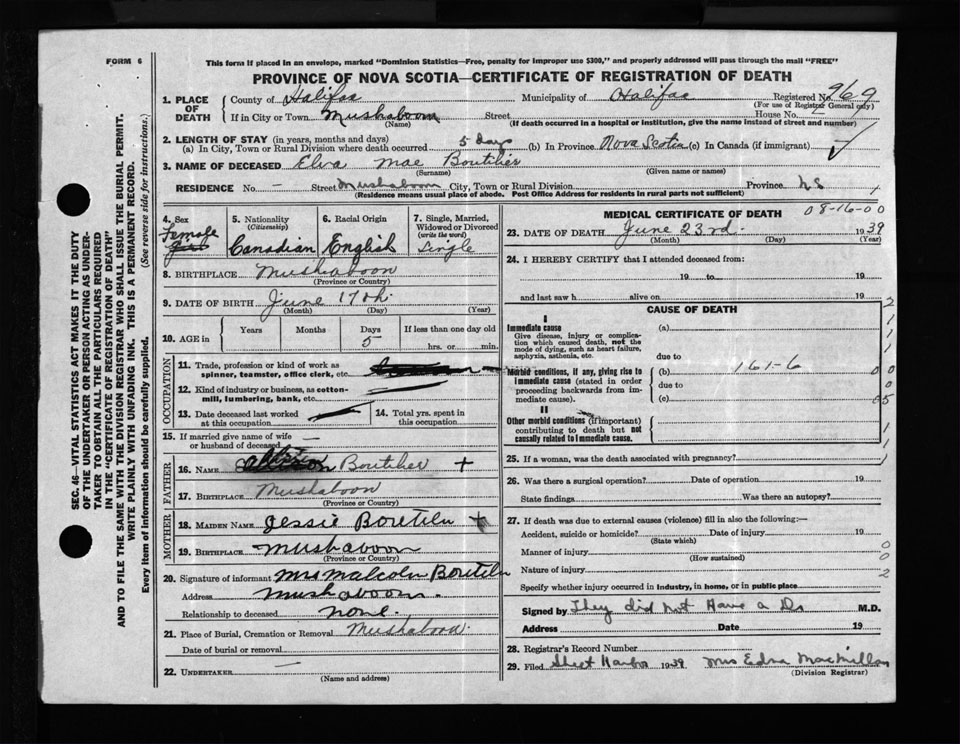 FORM 6
This form if placed in an envelope, marked "Dominion Statistics—Free, penalty for improper use $300," and properly addressed will pass through the mail "FREE"
PROVINCE OF NOVA SCOTIA—CERTIFICATE OF REGISTRATION OF DEATH
1. PLACE OF DEATH County of Halifax Municipality of Halifax Registered No. 969
(For use of Registrar General only)
If in City or Town Mushaboom Street House No.
(Name) (If death occurred in a hospital or institution, give the name instead of street and number)
2. LENGTH OF STAY (in years, months and days)
(a) In City, Town or Rural Division where death occurred 5 days (b) In Province Nova Scotia (c) In Canada (if immigrant) ✓
3. NAME OF DECEASED Elva Mae Boutilier
(Surname) (Given name or names)
RESIDENCE No. — Street Mushaboom City, Town or Rural Division Province NS 1
(Residence means usual place of abode. Post Office Address for residents in rural parts not sufficient)
4. Sex Female
5. Nationality (Citizenship) Canadian
6. Racial Origin English
7. Single, Married, Widowed or Divorced (write the word) Single
8. BIRTHPLACE Mushaboon
(Province or Country)
9. DATE OF BIRTH June 17th.
(Month) (Day) (Year)
10. AGE in Years Months Days 5 If less than one day old hrs. or min.
OCCUPATION
11. Trade, profession or kind of work as spinner, teamster, office clerk, etc.
12. Kind of industry or business, as cotton-mill, lumbering, bank, etc.
13. Date deceased last worked at this occupation
14. Total yrs. spent in this occupation
15. If married give name of wife or husband of deceased —
FATHER
16. NAME Boutilier +
17. BIRTHPLACE Mushaboon
(Province or Country)
MOTHER
18. MAIDEN NAME Jessie Boutilier +
19. BIRTHPLACE Mushaboon
(Province or Country)
20. Signature of informant Mrs Malcolm Boutilier
Address Mushaboom.
Relationship to deceased none.
21. Place of Burial, Cremation or Removal Mushaboon.
Date of burial or removal
22. UNDERTAKER —
(Name and address)
MEDICAL CERTIFICATE OF DEATH 08-16-00
23. DATE OF DEATH June 23rd. 1939
(Month) (Day) (Year)
24. I HEREBY CERTIFY that I attended deceased from:
19 to 19
and last saw h alive on 19
CAUSE OF DEATH
I
Immediate cause
Give disease, injury or complication which caused death, not the mode of dying, such as heart failure, asphyxia, asthenia, etc.
(a)
due to
Morbid conditions, if any, giving rise to immediate cause (stated in order proceeding backwards from immediate cause).
(b) 161-6
due to
(c)
II
Other morbid conditions (if important) contributing to death but not causally related to immediate cause.
25. If a woman, was the death associated with pregnancy?
26. Was there a surgical operation? Date of operation 19
State findings Was there an autopsy?
27. If death was due to external causes (violence) fill in also the following:—
Accident, suicide or homicide? Date of injury 19
(State which)
Manner of injury
(How sustained)
Nature of injury
Specify whether injury occurred in industry, in home, or in public place
Signed by They did not Have a Dr M.D.
Address Date 19
28. Registrar's Record Number
29. Filed Sheet Harbor 1939 Mrs Edna MacMillan
(Division Registrar)
SEC. 46—VITAL STATISTICS ACT MAKES IT THE DUTY
OF THE UNDERTAKER OR PERSON ACTING AS UNDER-
TAKER TO OBTAIN ALL THE PARTICULARS REQUIRED
IN THE "CERTIFICATE OF REGISTRATION OF DEATH"
AND TO FILE THE SAME WITH THE DIVISION REGISTRAR WHO SHALL ISSUE THE BURIAL PERMIT.
WRITE PLAINLY WITH UNFADING INK. THIS IS A PERMANENT RECORD.
Every item of information should be carefully supplied. (See reverse side for instructions.)